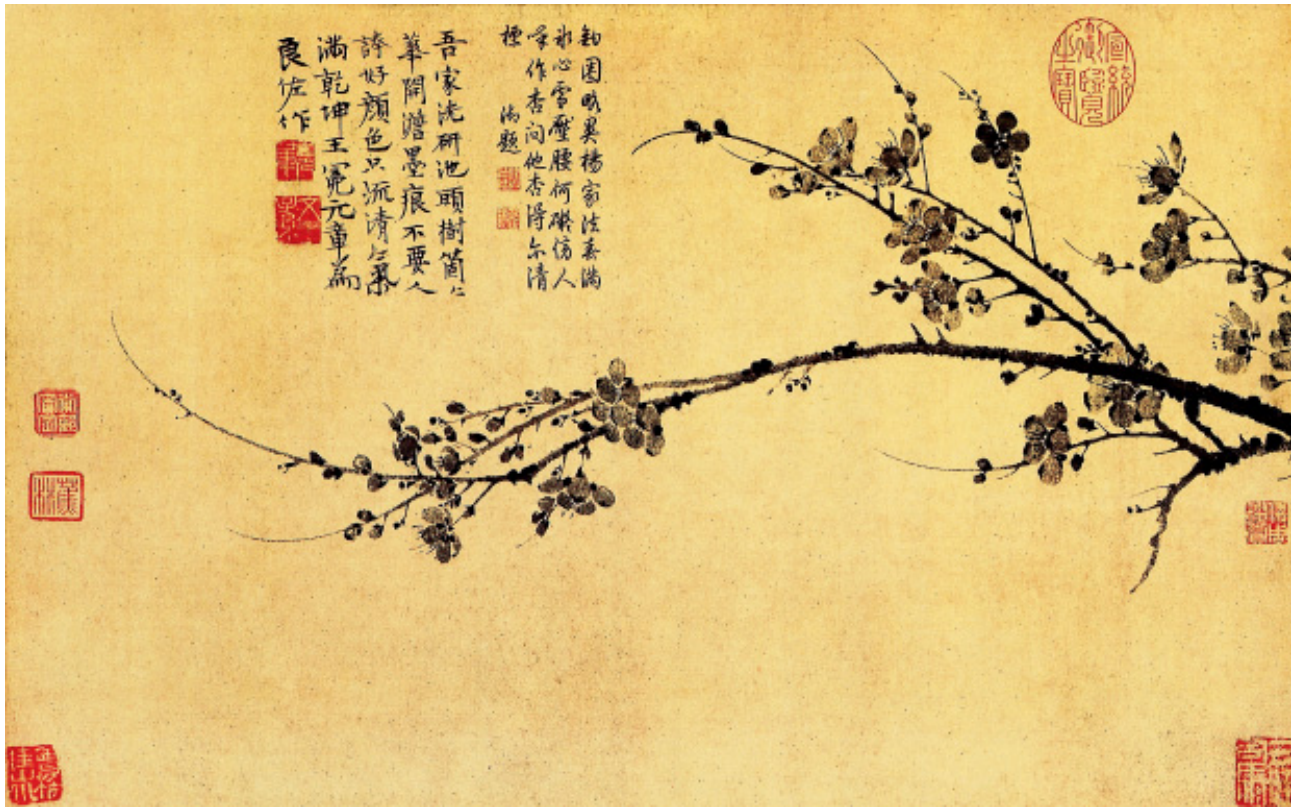 宣統御覽之寶
鉤圈略異楊家法春滿
冰心雪壓腰何礙傍人
呼作杏問他杏得尓清
標 御題
吾家洗研池頭樹箇〻
華開澹墨痕不要人
誇好顏色只流清氣
滿乾坤王冕元章為
良佐作
蕉林